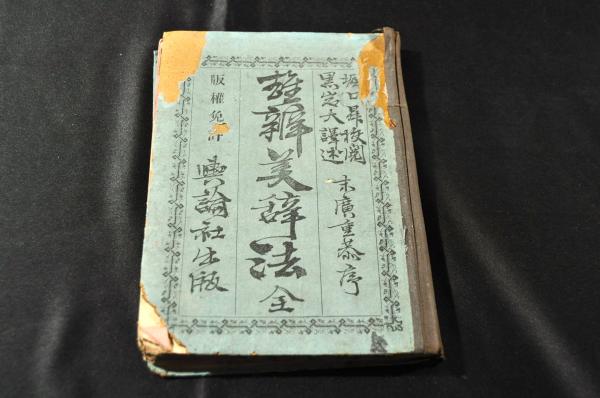 堀口昇校閲
黒岩大譯述
末廣重恭序
雄辨美辞法 全
版權免許
輿論社出版